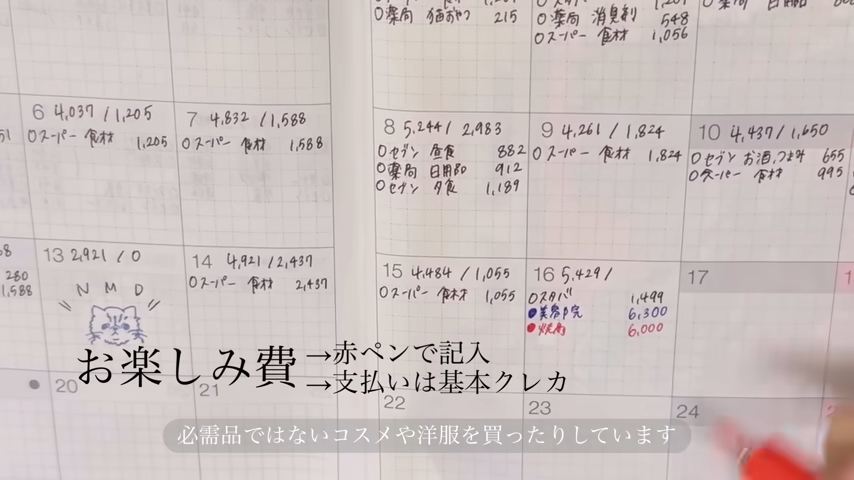 ○薬局 猫おやつ 215
○薬局 消臭剤 548
○スーパー 食材 1,056
6 4,037 / 1,205
○スーパー 食材 1,205
7 4,832 / 1,588
○スーパー 食材 1,588
8 5,244 / 2,983
○セブン 昼食 882
○薬局 日用品 912
○セブン 夕食 1,189
9 4,261 / 1,824
○スーパー 食材 1,824
10 4,437 / 1,650
○セブン お酒,つまみ 655
○スーパー 食材 995
280
1,588
13 2,921 / 0
N M D
14 4,921 / 2,437
○スーパー 食材 2,437
15 4,484 / 1,055
○スーパー 食材 1,055
16 5,429 /
○スタバ 1,499
●美容院 6,300
●焼肉 6,000
17
お楽しみ費
→赤ペンで記入
→支払いは基本クレカ
20
21
22
23
24
必需品ではないコスメや洋服を買ったりしています